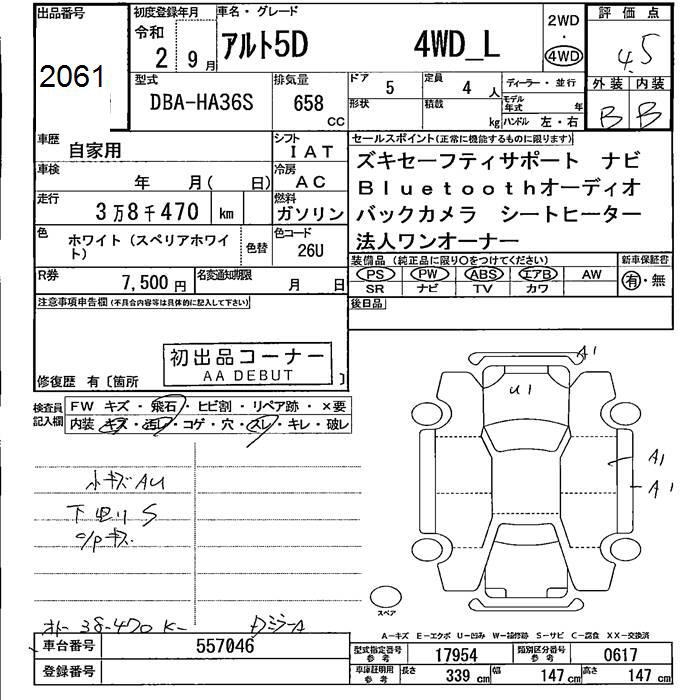 出品番号
2061
初度登録年月
令和
2 9月
車名・グレード
アルト5D 4WD_L
2WD
・
4WD
評価点
4.5
外装 内装
B B
型式
DBA-HA36S
排気量
658 CC
ドア
5
定員
4 人
形状
積載
kg
ディーラー・並行
モデル年式 年
ハンドル 左・右
車歴
自家用
シフト
IAT
車検
年 月( 日)
冷房
AC
走行
3万8千470 km
燃料
ガソリン
色
ホワイト(スペリアホワイト)
色替
色コード
26U
R券
7,500円
名変通知期限
月 日
セールスポイント(正常に機能するものに限ります)
ズキセーフティサポート ナビ
Bluetoothオーディオ
バックカメラ シートヒーター
法人ワンオーナー
装備品(純正品に限り○をつけてください)
PS PW ABS エアB AW
SR ナビ TV カワ
新車保証書
有・無
後日品
注意事項申告欄(不具合内容等は具体的に記入して下さい)
初出品コーナー
AA DEBUT
修復歴 有〔箇所 〕
検査員記入欄
FW キズ・飛石・ヒビ割・リペア跡・×要
内装 キズ・汚レ・コゲ・穴・スレ・キレ・破レ
小キズAU
下回りS
o/pキズ
オドー 38-470 K-
DミラーA
A1
U1
A1
A1
スペア
A-キズ E-エクボ U-凹み W-補修跡 S-サビ C-腐食 XX-交換済
車台番号
557046
登録番号
型式指定番号
参考
17954
類別区分番号
参考
0617
車庫証明用
参考
長さ 339 cm 幅 147 cm 高さ 147 cm